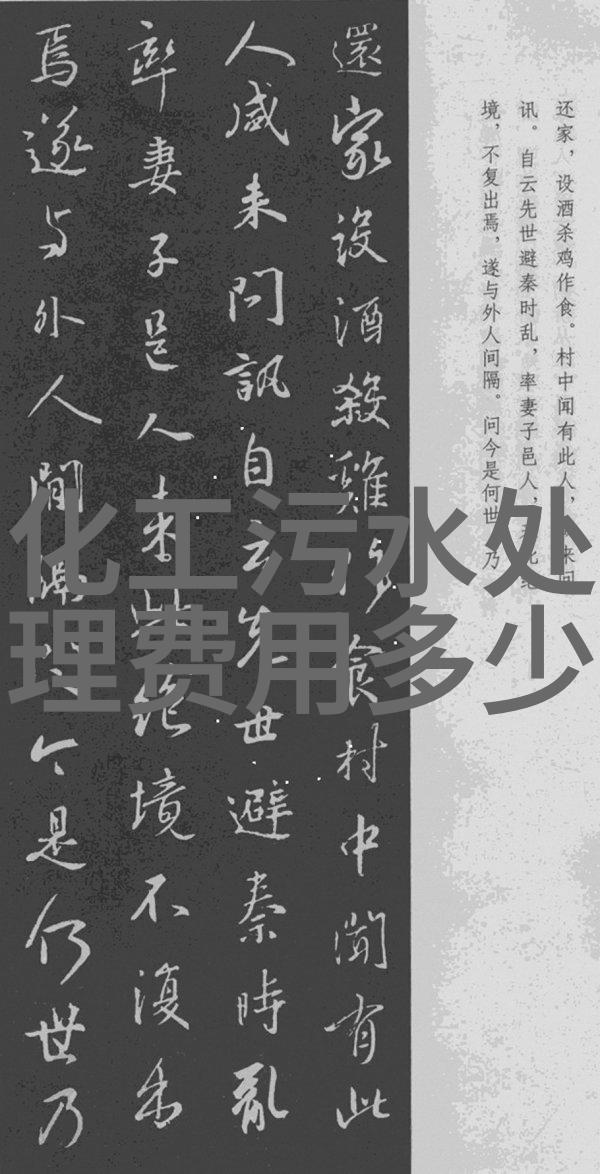 还家，设酒杀鸡作食。村中闻有此人，来问
讯。自云先世避秦时乱，率妻子邑人，来此绝
境，不复出焉，遂与外人间隔。问今是何世，乃
還家設酒殺雞作食村中聞有此
人咸来問訊自云先世避秦時亂
率妻子邑人来此絕境不復出
焉遂与外人間隔問今是何世乃
化工污水处
理费用多少